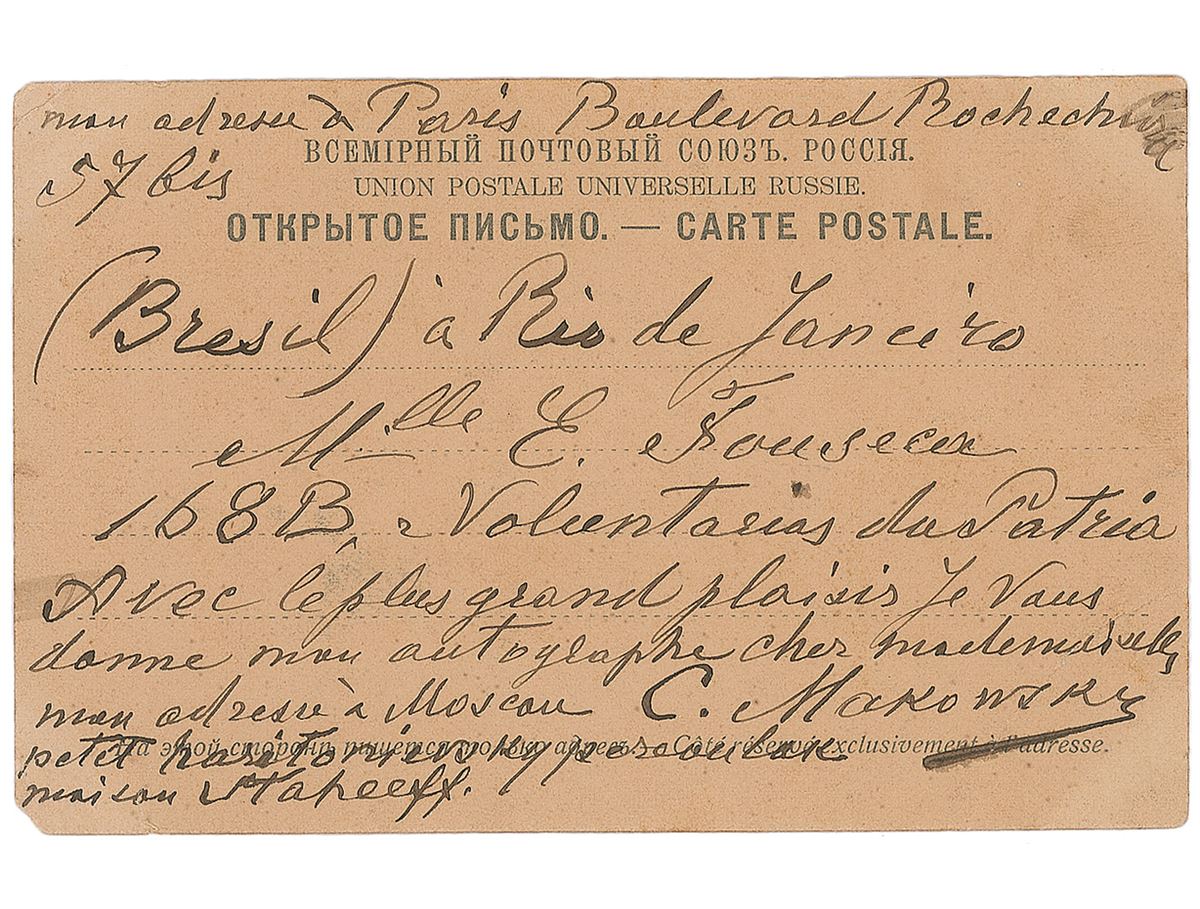 mon adresse à Paris Boulevard Rochechouart
57 bis
ВСЕМІРНЫЙ ПОЧТОВЫЙ СОЮЗЪ. РОССІЯ.
UNION POSTALE UNIVERSELLE RUSSIE.
ОТКРЫТОЕ ПИСЬМО. — CARTE POSTALE.
(Bresil) à Rio de Janeiro
Mlle E. Fonseca
168 B, Voluntarios da Patria
Avec le plus grand plaisir Je Vous
donne mon autographe cher mademoiselle,
mon adresse à Moscou C. Makowsky
На этой сторонѣ пишется только адресъ. — Côté réservé exclusivement à l'adresse.
petit haritonievsky pereoulok
maison